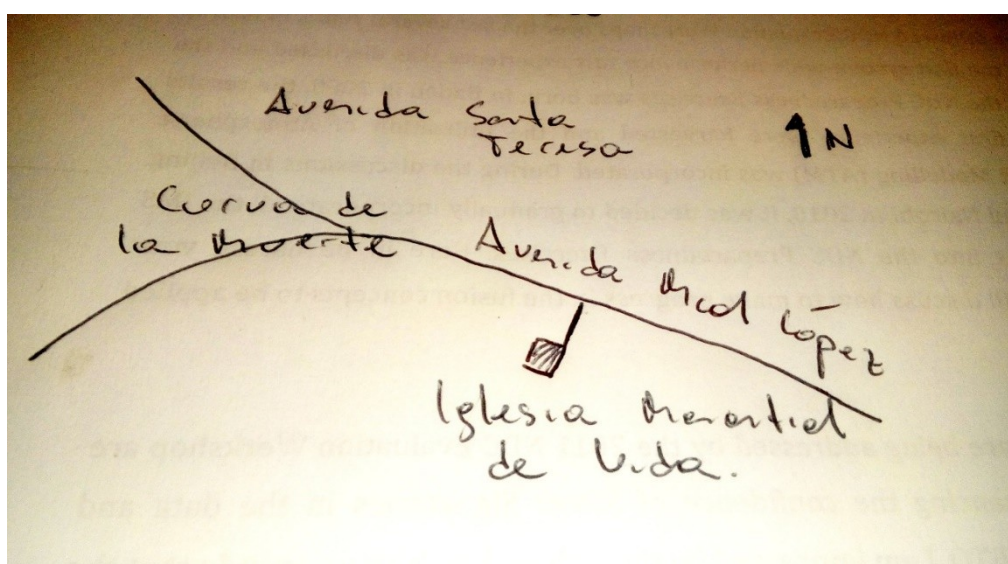 Avenida Santa
Teresa
N
Curva de
la Muerte
Avenida Mcal López
Iglesia Manantial
de Vida.